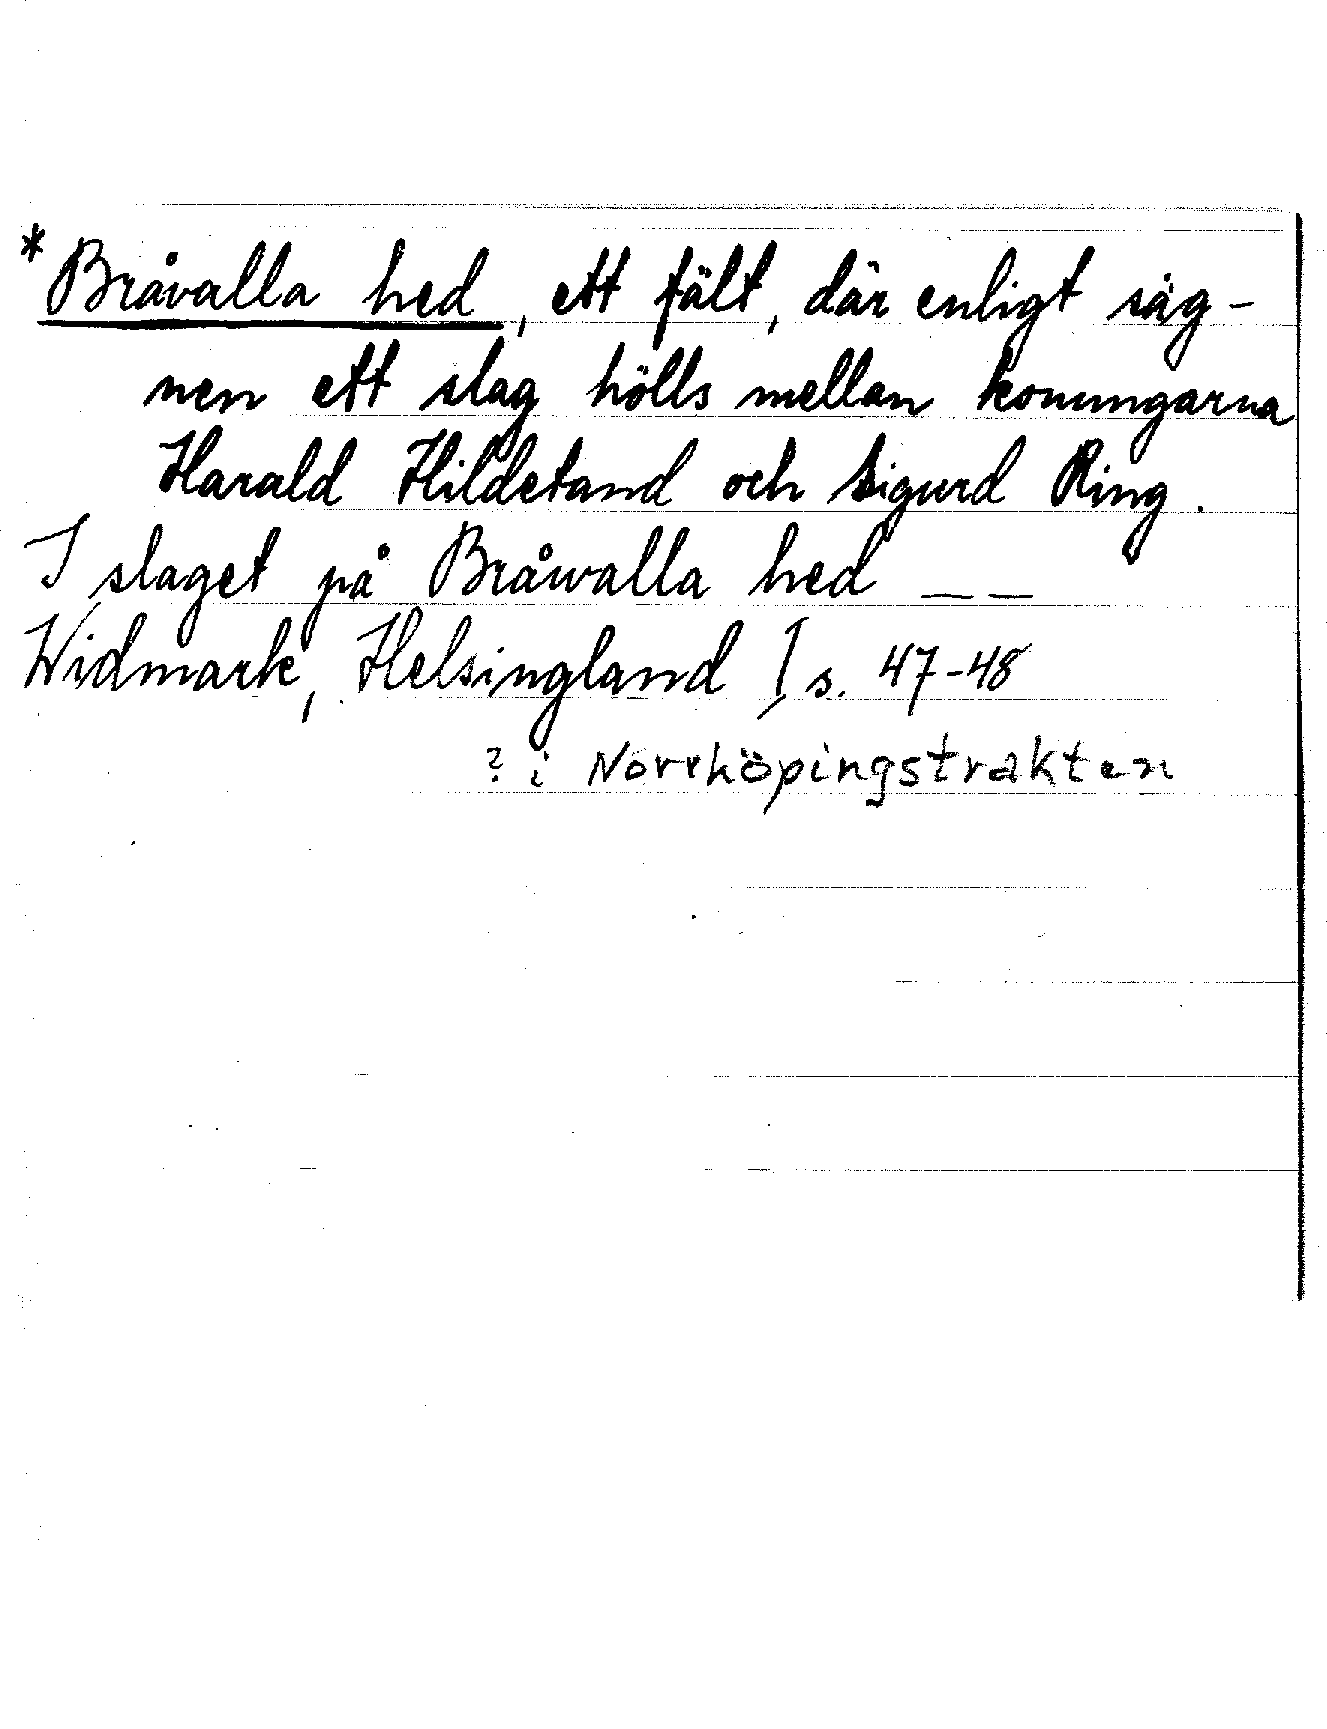 *Bråvalla hed, ett fält, där enligt säg-
nen ett slag hölls mellan konungarna
Harald Hildetand och Sigurd Ring.
I slaget på Bråwalla hed _ _
Widmark, Helsingland I s. 47-48
? i Norrköpingstrakten